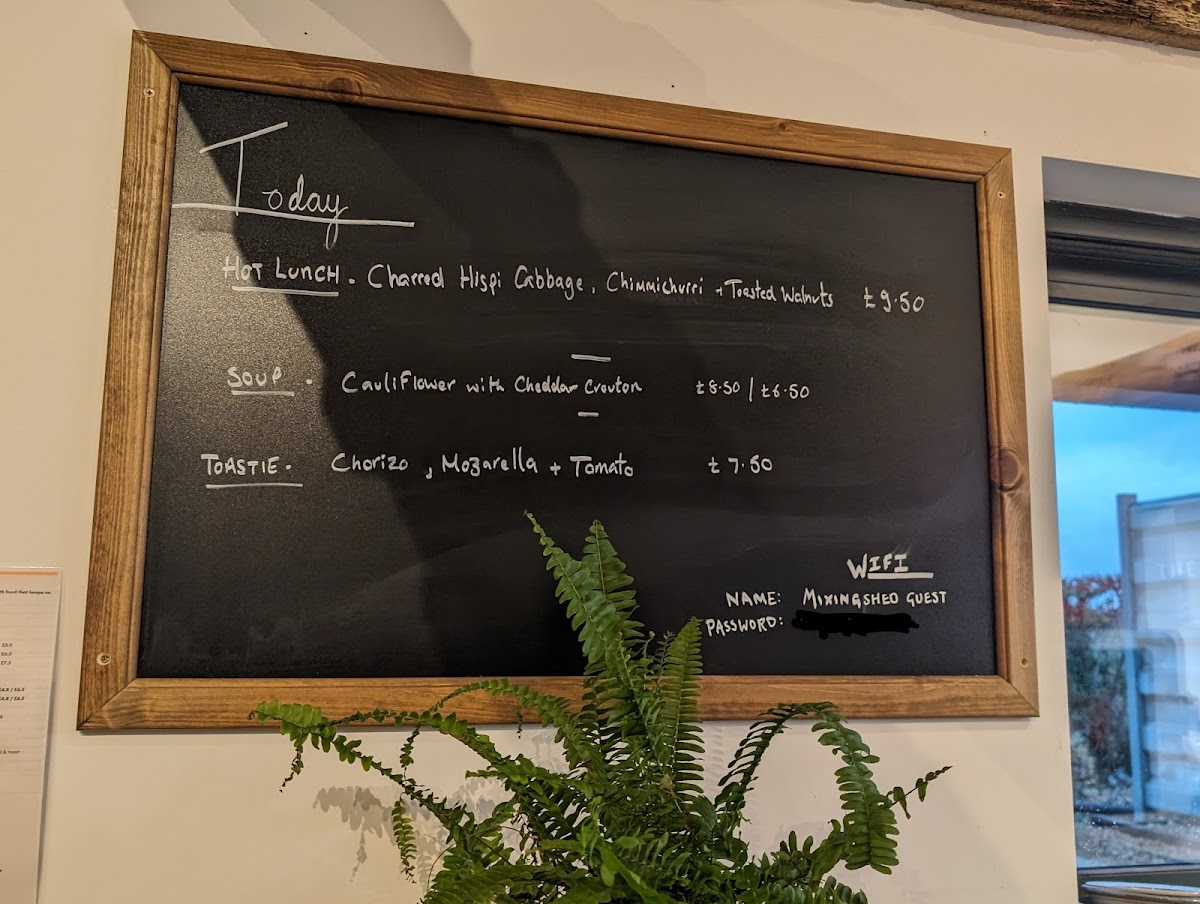 Today
HOT LUNCH. Charred Hispi Cabbage, Chimmichurri + Toasted Walnuts £9.50
SOUP. Cauliflower with Cheddar Crouton £8.50 / £6.50
TOASTIE. Chorizo, Mozarella + Tomato £7.50
WIFI
NAME: MIXINGSHED GUEST
PASSWORD: